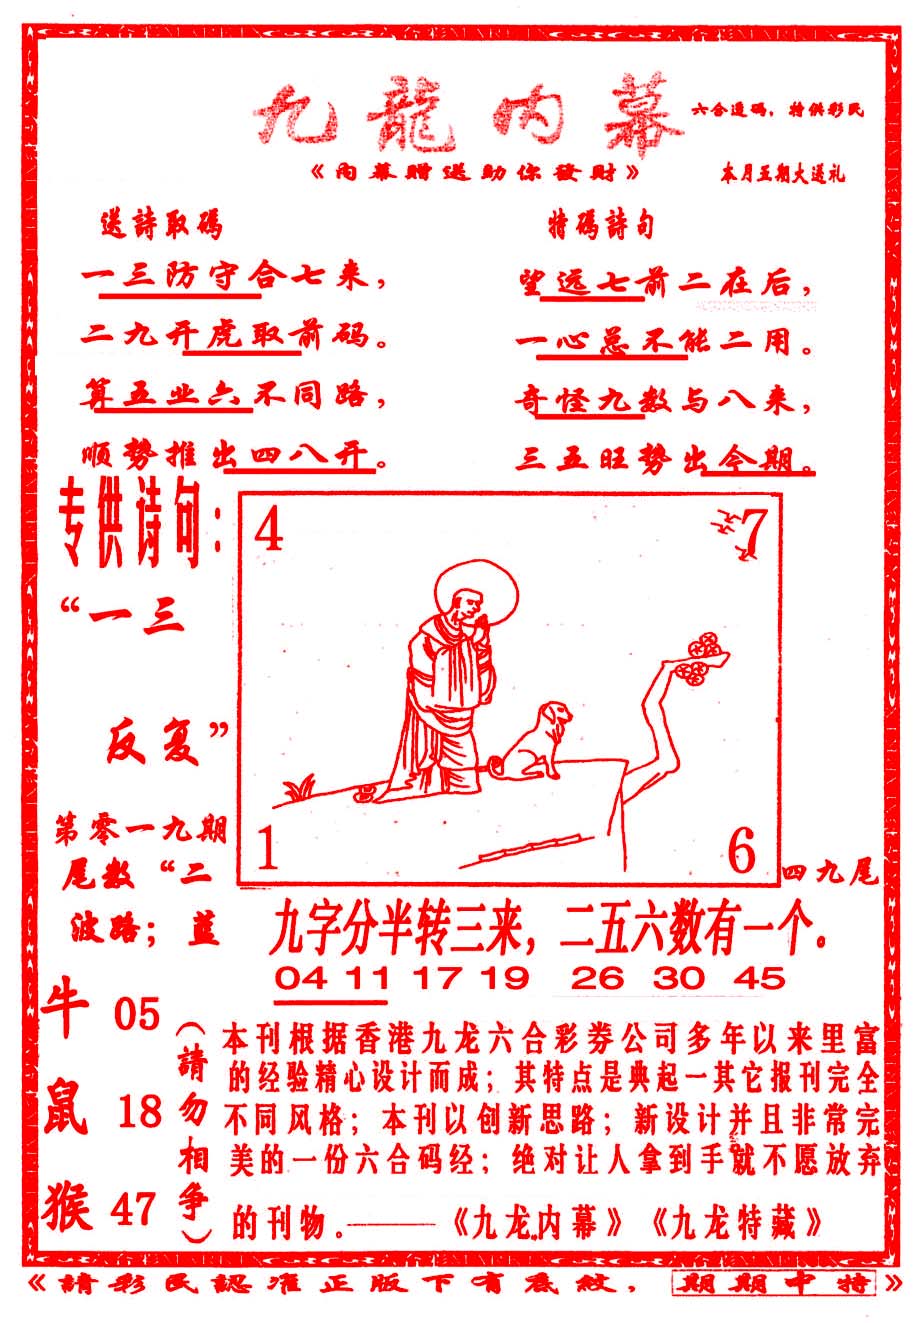 九龍内幕
六合透码，特供彩民
《内幕贈送助你發財》
本月五期大送礼
送詩取碼
一三防守合七来，
二九开虎取前码。
算五业六不同路，
顺势推出四八开。
特碼詩句
望远七前二在后，
一心总不能二用。
奇怪九数与八来，
三五旺势出今期。
专供诗句：
“一三
反复”
4
7
1
6
第零一九期
尾数“二
四九尾
波路；蓝
九字分半转三来，二五六数有一个。
04 11 17 19 26 30 45
牛 05
鼠 18
猴 47
（請勿相争）
本刊根据香港九龙六合彩券公司多年以来里富
的经验精心设计而成；其特点是典起一其它报刊完全
不同风格；本刊以创新思路；新设计并且非常完
美的一份六合码经；绝对让人拿到手就不愿放弃
的刊物。———《九龙内幕》《九龙特藏》
《請彩民認准正版下有底紋，期期中特》